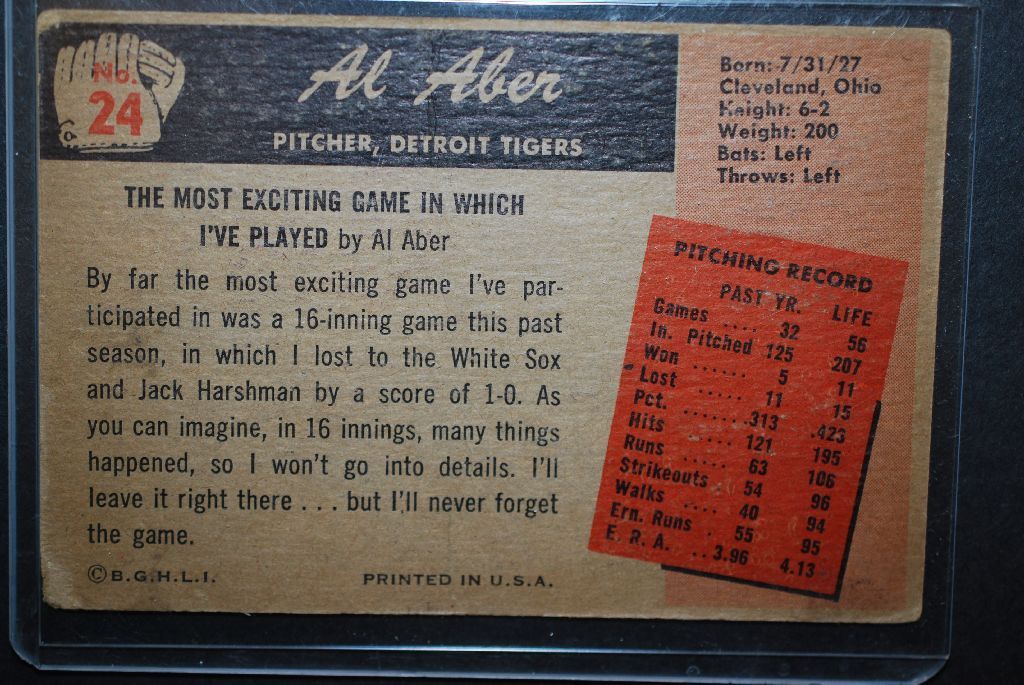 No.
24
Al Aber
PITCHER, DETROIT TIGERS
Born: 7/31/27
Cleveland, Ohio
Height: 6-2
Weight: 200
Bats: Left
Throws: Left
THE MOST EXCITING GAME IN WHICH
I'VE PLAYED by Al Aber
By far the most exciting game I've par-
ticipated in was a 16-inning game this past
season, in which I lost to the White Sox
and Jack Harshman by a score of 1-0. As
you can imagine, in 16 innings, many things
happened, so I won't go into details. I'll
leave it right there . . . but I'll never forget
the game.
©B.G.H.L.I. PRINTED IN U.S.A.
PITCHING RECORD
PAST YR. LIFE
Games .... 32 56
In. Pitched 125 207
Won ...... 5 11
Lost ..... 11 15
Pct. ...... .313 .423
Hits ..... 121 195
Runs ..... 63 106
Strikeouts 54 96
Walks .... 40 94
Ern. Runs . 55 95
E. R. A. .. 3.96 4.13